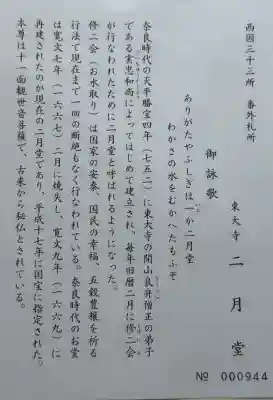 西国三十三所 番外札所
東大寺 二月堂
御詠歌
ありがたやふしぎは一か二月堂
わかさの水をむかへたもふぞ
奈良時代の天平勝宝四年（七五二）に東大寺の開山良弁僧正の弟子
である実忠和尚によってはじめて建立され、毎年旧暦二月に修二会
が行なわれたために二月堂と呼ばれるようになった。
修二会（お水取り）は国家の安泰、国民の幸福、五穀豊穣を祈る
行法で現在まで一回の断絶もなく行なわれている。奈良時代のお堂
は寛文七年（一六六七）二月に焼失し、寛文九年（一六六九）に
再建されたのが現在の二月堂であり、平成十七年に国宝に指定された。
本尊は十一面観世音菩薩で、古来から秘仏とされている。
№ 000944